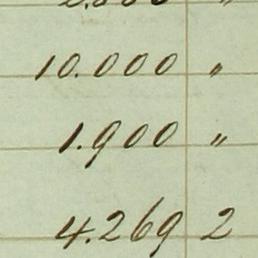 10.000 "
1.900 "
4.269 2